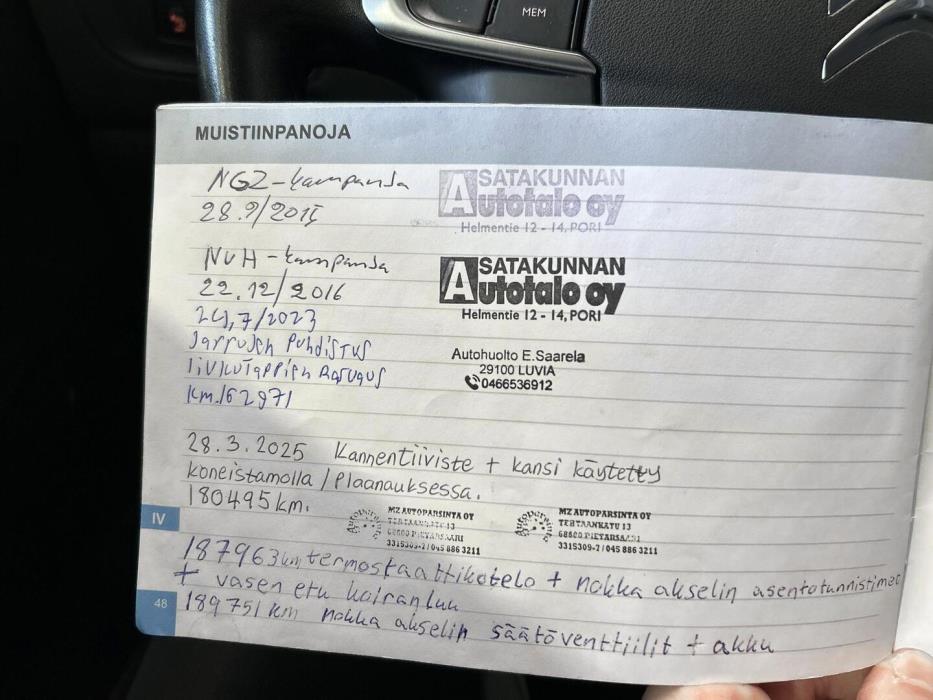 MEM
MUISTIINPANOJA
NGZ-kampanja
28.9/2015
SATAKUNNAN
Autotalo oy
Helmentie 12 - 14, PORI
NVH-kampanja
22.12/2016
SATAKUNNAN
Autotalo oy
Helmentie 12 - 14, PORI
24.7/2023
Jarrujen Puhdistus
liukutappien Rasvaus
km.162971
Autohuolto E.Saarela
29100 LUVIA
0466536912
28.3.2025 Kannentiiviste + kansi käytetty
koneistamolla/Plaanauksessa.
180495km.
MZ AUTOPARSINTA OY
68600 PIETARSAARI
3315309-7/045 886 3211
MZ AUTOPARSINTA OY
TERTAANKATU 13
68600 PIETARSAARI
3315309-7/045 886 3211
IV
187963km termostaattikotelo + nokka akselin asentotunnistimet
+ vasen etu koiranluu
48
189751km nokka akselin säätöventtiilit + akku